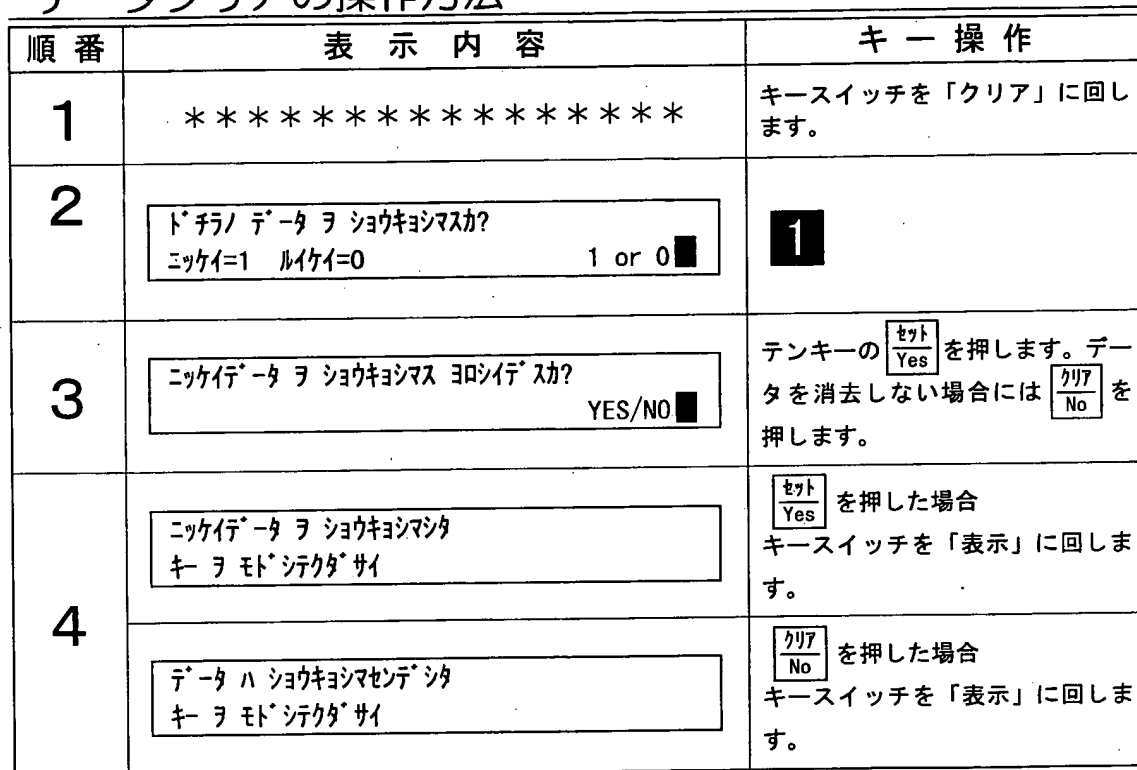 データクリアの操作方法
順番 表示内容 キー操作
1
****************
キースイッチを「クリア」に回し
ます。
2
ﾄﾞﾁﾗﾉ ﾃﾞｰﾀ ｦ ｼｮｳｷｮｼﾏｽｶ?
ﾆｯｹｲ=1 ﾙｲｹｲ=0 1 or 0
1
3
ﾆｯｹｲﾃﾞｰﾀ ｦ ｼｮｳｷｮｼﾏｽ ﾖﾛｼｲﾃﾞｽｶ?
YES/NO
テンキーの ｾｯﾄ Yes を押します。デー
タを消去しない場合には ｸﾘｱ No を
押します。
4
ﾆｯｹｲﾃﾞｰﾀ ｦ ｼｮｳｷｮｼﾏｼﾀ
ｷｰ ｦ ﾓﾄﾞｼﾃｸﾀﾞｻｲ
ｾｯﾄ Yes を押した場合
キースイッチを「表示」に回しま
す。
ﾃﾞｰﾀ ﾊ ｼｮｳｷｮｼﾏｾﾝﾃﾞｼﾀ
ｷｰ ｦ ﾓﾄﾞｼﾃｸﾀﾞｻｲ
ｸﾘｱ No を押した場合
キースイッチを「表示」に回しま
す。